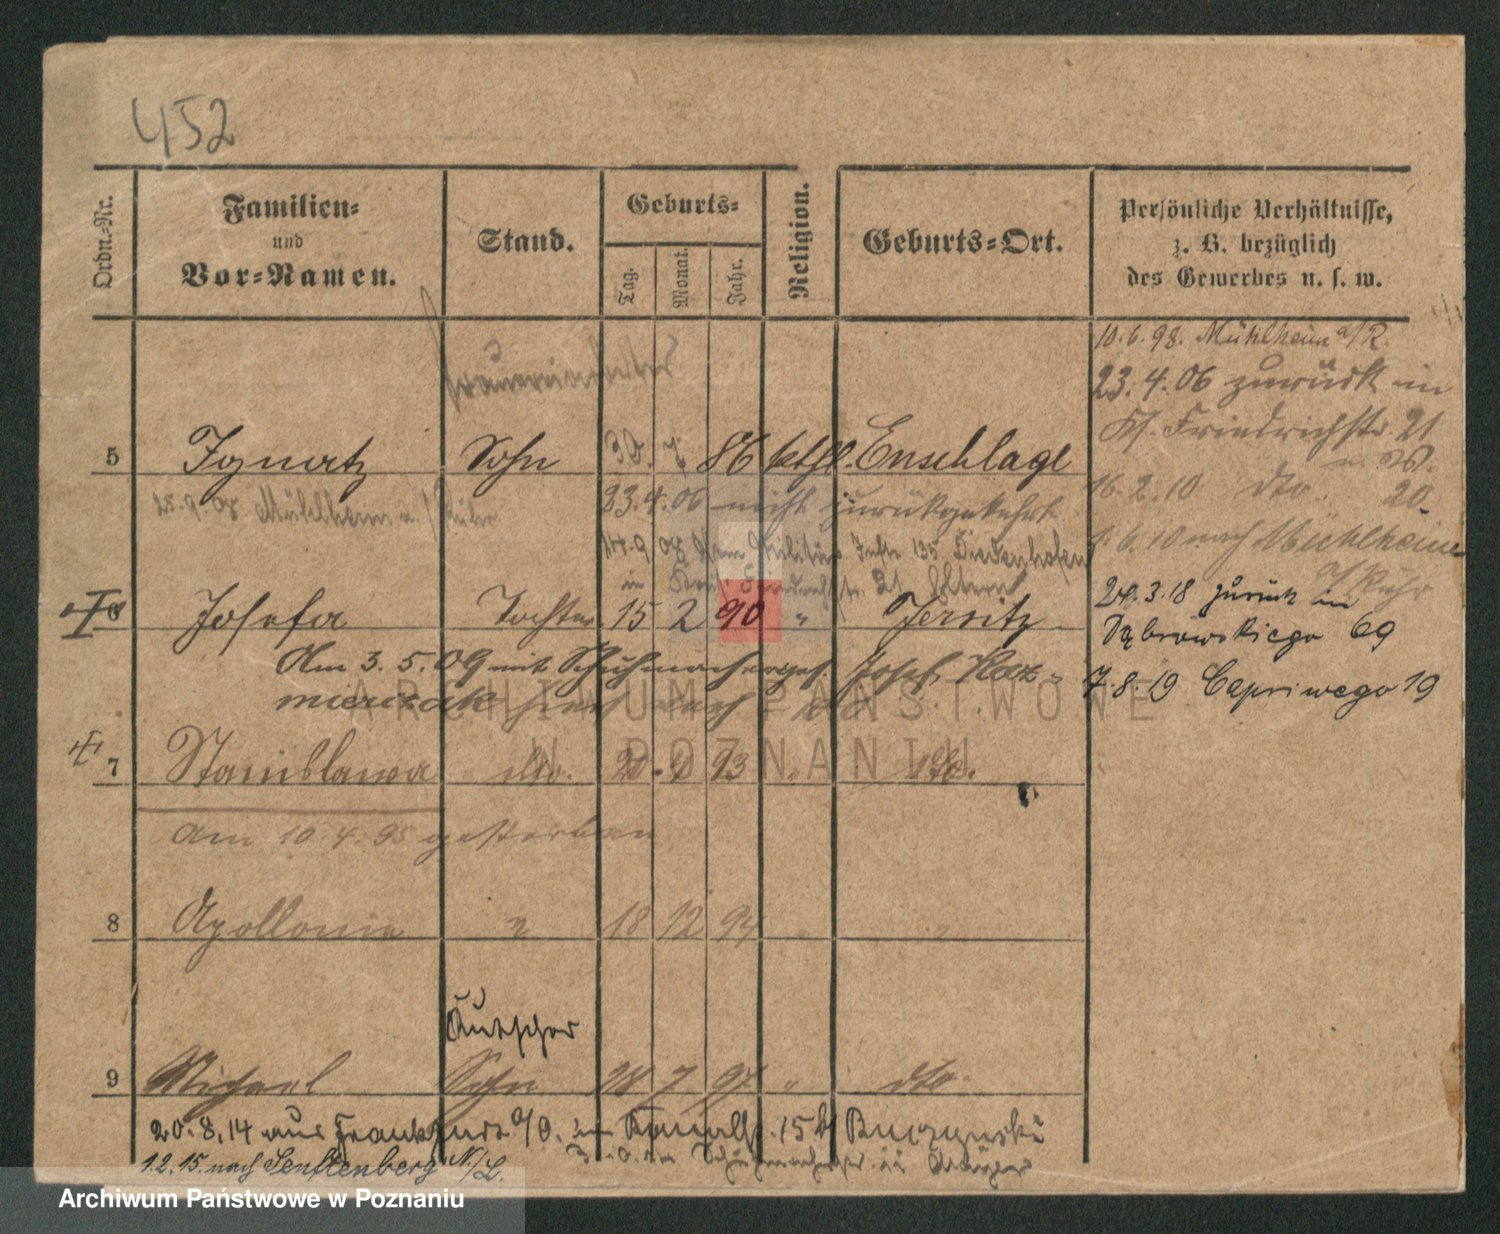 452
Ordn.-Nr.
Familien-
und
Vor-Namen.
Stand.
Geburts-
Tag.
Monat.
Jahr.
Religion.
Geburts-Ort.
Persönliche Verhältnisse,
z. B. bezüglich
des Gewerbes u. s. w.
10.6.98. Mühlheim a/R.
23.4.06 zurück in
Friedrichstr. 21
5 Ignatz Sohn 30. 7. 86 kthl. Enschlage
16.2.10 dto. 20.
25.9.08 Mühlheim a./Ruhr
23.4.06 nicht zurückgekehrt
1.6.10 nach Mühlheim
/Ruhr
14.9.08 Militär Inftr 135 Diedenhofen
in 21 Eltern
24.3.18 zurück in
6 Josefa Tochter 15 2 90 " Jersitz
Dąbrowskiego 69
Am 3.5.09 mit Schuhmacherges. Josef Kaz-
mierczak
7.8.19 Capriwego 19
ARCHIWUM PAŃSTWOWE
W POZNANIU
7 Stanislawa dto. 20. 9 93 " dto.
am 10.4.95 gestorben
8 Apollonia " 18 12 94 " "
Kutscher
9 Michael Sohn 28 7 97 " dto.
20.8.14 aus Frankfurt a/O. in 15 b/ Buczynski
1.2.15. nach Senftenberg N./L.
Archiwum Państwowe w Poznaniu